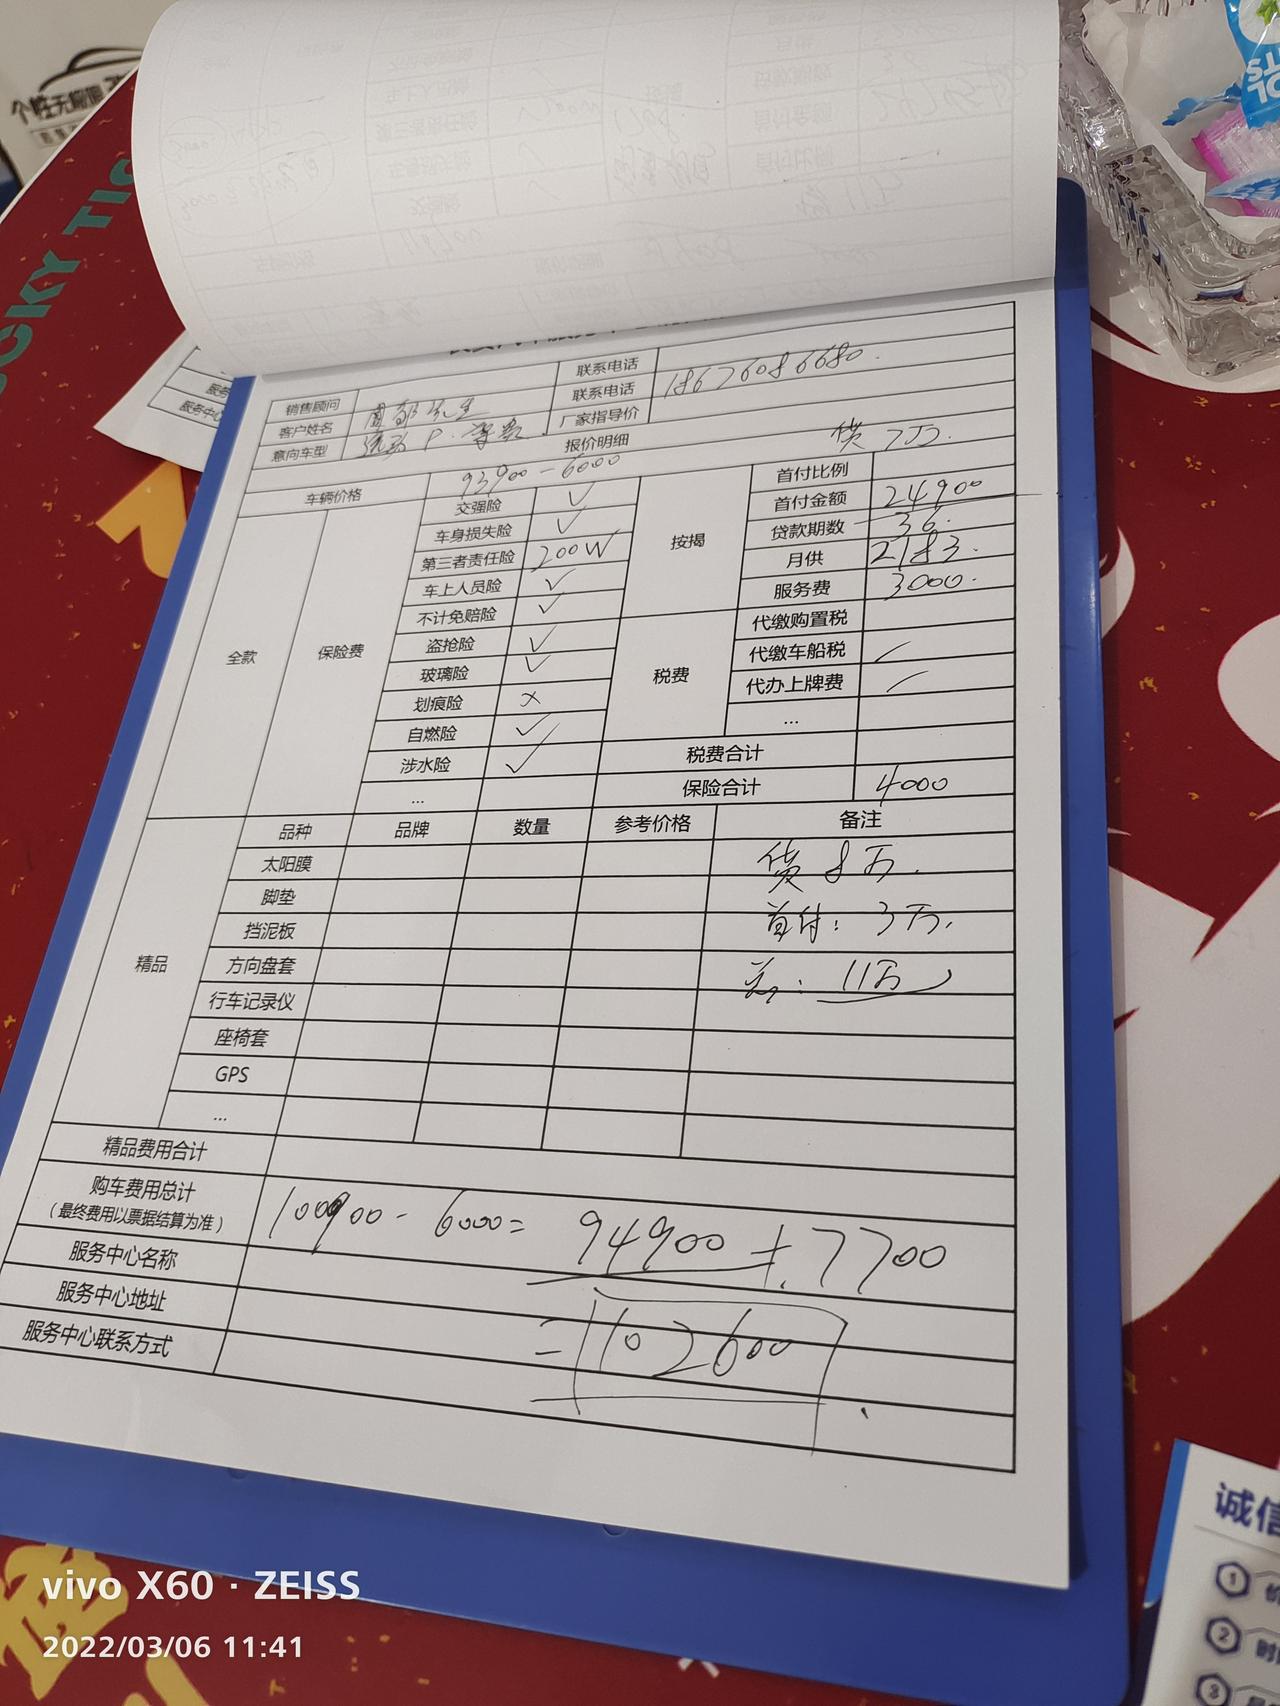 个性无痕
CKY TIG
TS
服务
服务中心
销售顾问 联系电话
客户姓名 周郁先生 联系电话 18676086680.
意向车型 厂家指导价
报价明细 贷 7万.
车辆价格 93900-6000
全款 保险费
交强险 ✓
车身损失险 ✓
第三者责任险 200W
车上人员险 ✓
不计免赔险 ✓
盗抢险 ✓
玻璃险 ✓
划痕险 ×
自燃险 ✓
涉水险 ✓
...
按揭
首付比例
首付金额 24900
贷款期数 36.
月供 2183.
服务费 3000.
税费
代缴购置税
代缴车船税
代办上牌费
...
税费合计
保险合计 4000
精品
品种 品牌 数量 参考价格 备注
太阳膜 贷 8万.
脚垫 首付: 3万.
挡泥板
方向盘套 11万
行车记录仪
座椅套
GPS
...
精品费用合计
购车费用总计
(最终费用以票据结算为准)
100900-6000= 94900+7700
=102600
服务中心名称
服务中心地址
服务中心联系方式
诚信
1
2
3
vivo X60 · ZEISS
2022/03/06 11:41